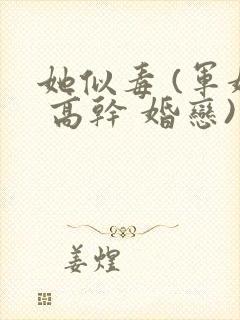 她似毒(軍婚
高幹 婚戀)
姜煌